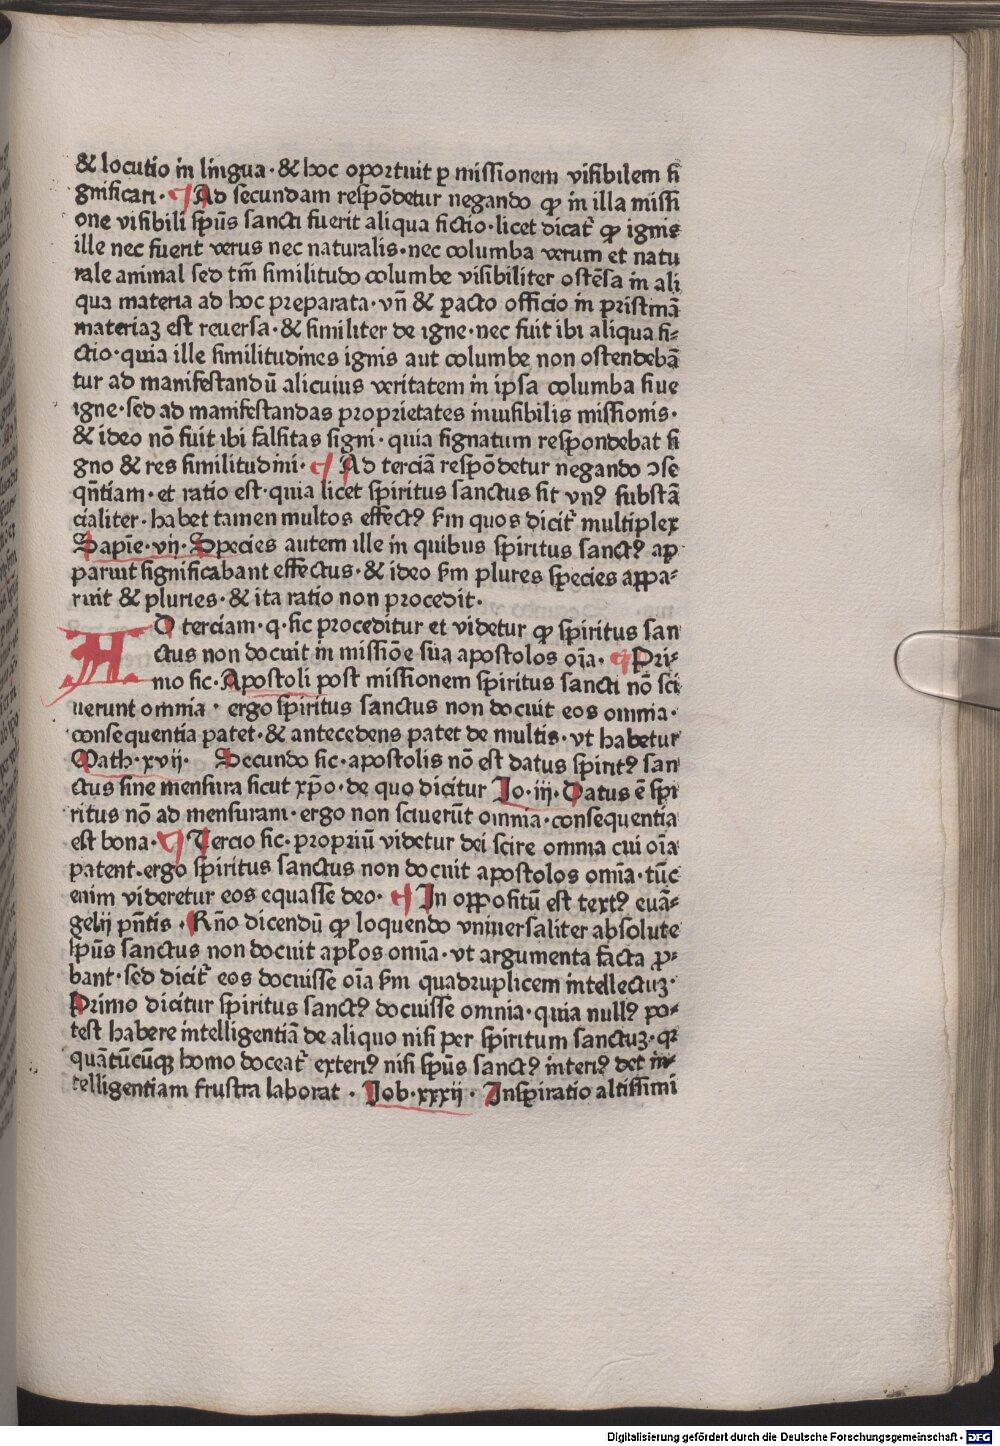 & locutio in lingua · & hoc oportuit ꝑ missionem visibilem si
gnificari · ¶ Ad secundam respōdetur negando ꝙ in illa missi
one visibili spūs sancti fuerit aliqua fictio · licet dicat᷑ ꝙ ignis
ille nec fuerit verus nec naturalis · nec columba verum et natu
rale animal sed tm̄ similitudo columbe visibiliter ostēsa in ali
qua materia ad hoc preparata · vn̄ & ꝑacto officio in pristinā
materiaꝫ est reuersa · & similiter de igne · nec fuit ibi aliqua fi-
ctio · quia ille similitudines ignis aut columbe non ostendebā
tur ad manifestandū alicuius veritatem in ipsa columba siue
igne · sed ad manifestandas proprietates inuisibilis missionis ·
& ideo nō fuit ibi falsitas signi · quia signatum respondebat si
gno & res similitudini · ¶ Ad terciā respōdetur negando ↄse
qn̄tiam · et ratio est · quia licet spiritus sanctus sit vnꝰ substā
cialiter · habet tamen multos effectꝰ scd̄m quos dicit᷑ multiplex
Sapiē · vij · Species autem ille in quibus spiritus sanctꝰ aꝑ
paruit significabant effectus · & ideo scd̄m plures species aꝑpa-
ruit & pluries · & ita ratio non procedit ·
AD terciam · q · sic proceditur et videtur ꝙ spiritus san
ctus non docuit in missiōe sua apostolos oīa · ¶ Pri-
mo sic · Apostoli post missionem spiritus sancti nō sci
uerunt omnia · ergo spiritus sanctus non docuit eos omnia ·
consequentia patet · & antecedens patet de multis · vt habetur
Math · xvij · Secundo sic · apostolis nō est datus spiritꝰ san
ctus sine mensura sicut xp̄o · de quo dicitur Jo · iij · Datus ē spi
ritus nō ad mensuram · ergo non sciuerūt omnia · consequentia
est bona · ¶ Tercio sic · propriū videtur dei scire omnia cui oīa
patent · ergo spiritus sanctus non docuit apostolos omīa · tūc
enim videretur eos equasse deo · ¶ In oꝑpositū est textꝰ euā-
gelij pn̄tis · Rn̄o dicendū ꝙ loquendo vniuersaliter absolute
spūs sanctus non docuit apłos omīa · vt argumenta facta ꝓ-
bant · sed dicit᷑ eos docuisse oīa scd̄m quadruplicem intellectuꝫ ·
Primo dicitur spiritus sanctꝰ docuisse omnia · quia nullꝰ po-
test habere intelligentiā de aliquo nisi per spiritum sanctuꝫ · qꝛ
quātūcūqꝫ homo doceat᷑ exteriꝰ nisi spūs sanctꝰ interiꝰ det in-
telligentiam frustra laborat · Job · xxxij · Inspiratio altissimi
Digitalisierung gefördert durch die Deutsche Forschungsgemeinschaft - DFG